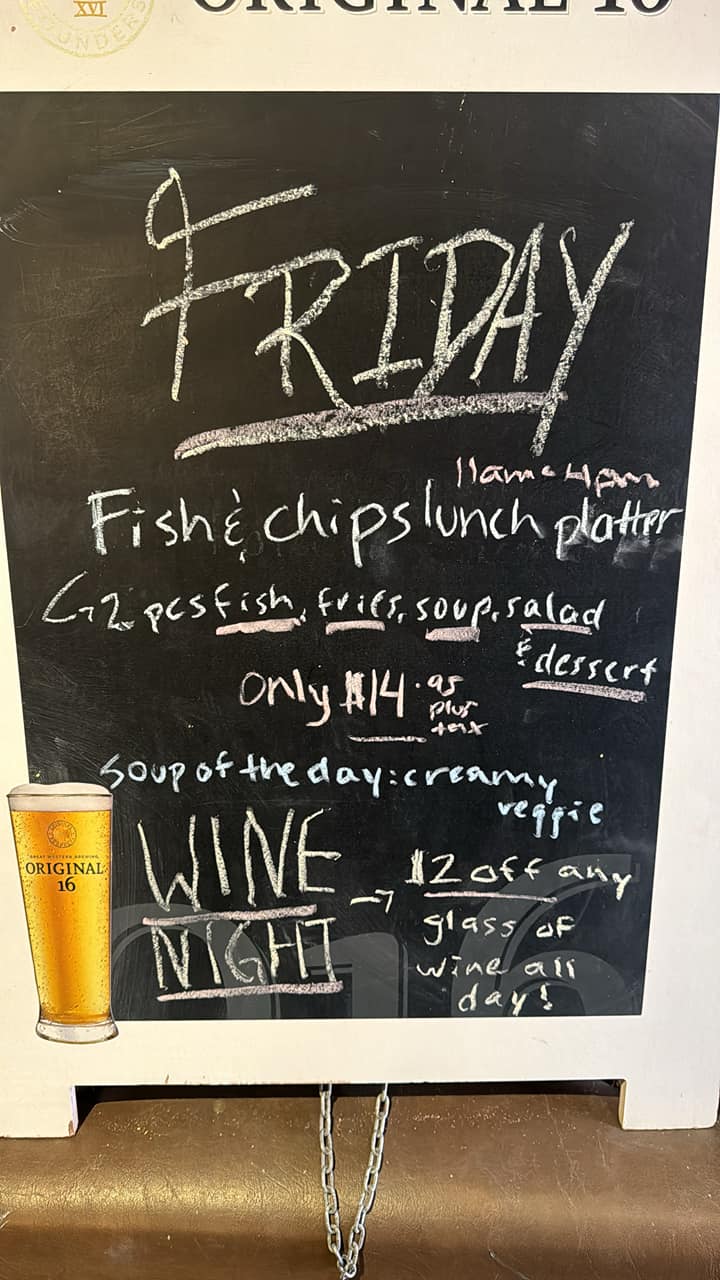 XVI
FOUNDERS
ORIGINAL 16
FRIDAY
11am-4pm
Fish & chips lunch platter
2 pcs fish, fries, soup, salad
& dessert
only $14.95
plus
tax
soup of the day: creamy
veggie
WINE
NIGHT
→ $2 off any
glass of
wine all
day!
GREAT WESTERN BREWING
ORIGINAL
16